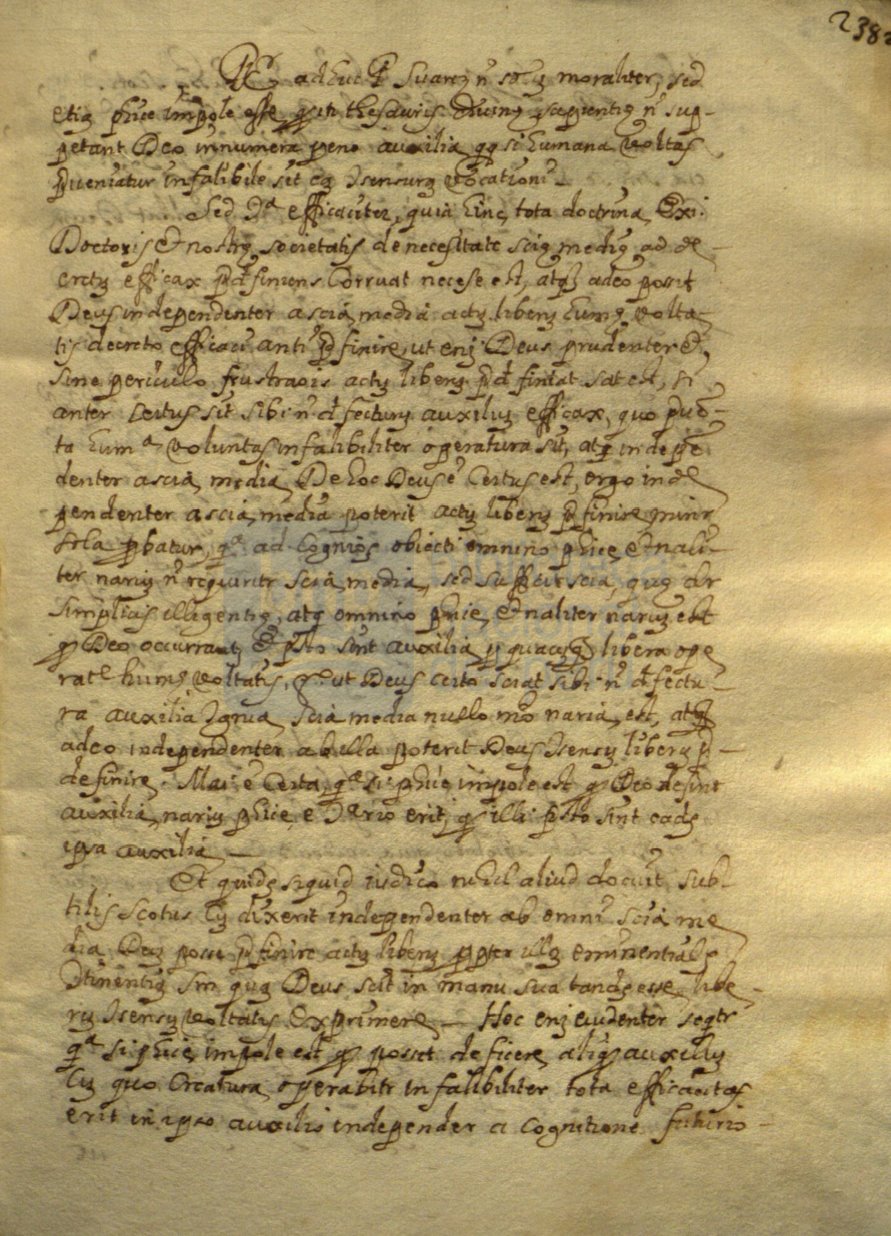 238
adhuc P. Suarez n̄ solū moraliter, sed
etiā phīce impōle esse, qd in thesauris divinę sapientię n̄ sup-
petant Deo innumera pene auxilia, qq si humana volūtas
pveniatur infalibile sit eā consensurā vocationi.
Sed cōtra efficaciter, quia hinc tota doctrina Exi.
Doctoris et nostrę societatis de necesitate scię medię ad de-
cretū efficax prędefiniens corruat necese est, atq adeo possit
Deus independenter a scia media actū liberū humę volūta-
tis decreto efficaci anti prędefinire, ut eni Deus prudenter et
sine periculo frustraōis actū liberū prędefiniat sat est, si
anter certus sit sibi n̄ defecturū auxiliū efficax, quo
ta humā voluntas infalibiliter operatura sit, atq indepē
denter a scia media De hoc Deus ē certus est, ergo inde
pendenter a scia media poterit actū liberū prędefinire, minr
sola pbatur, qa ad cognios obiecti omnino phīce, et nāli-
ter nariū n̄ requiritr scia media, sed sufficit scia, quę dr
simplicis illigentię, atq omnino phīe, et naliter nariū est
qd Deo occurrant, et pręsto sint auxilia p quacūq libera ope
rate humę volūtatis, g° ut Deus certo sciat sibi n̄ defectu-
ra auxilia congrua scia media nullo mō naria est, atq
adeo independenter ab illa poterit Deus consensū liberū p-
definire. Maī ē certa, qa si phīce impōle est qd Deo desint
auxilia, nariū phīce e cōtrario erit, qd illi pręsto sint eadē
ipsa auxilia —
Et quidē siquid iudico nihil aliud docuit sub-
tilis Scotus cū dixerit independenter ab omni scia me
dia Deū posse prędefinire actū liberū ppter illā eminentialē
continentiā sm̄ quā Deus scit in manu sua tandē esse libe-
rū consensū volūtatis exprimere — Hoc eni evidenter seqtr
qa si phīce impōle est qd possit deficere aliqd auxiliū
cū quo creatura operabitr infalibiliter tota efficacitas
erit in ipso auxilio independer a cognitione futurio-